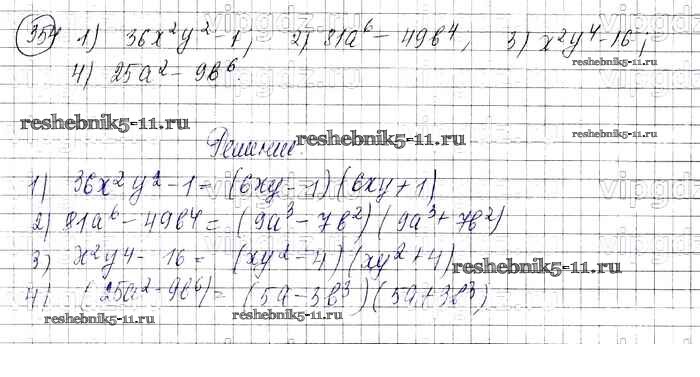 354 1) 36x²y² - 1; 2) 81a⁶ - 49b⁴; 3) x²y⁴ - 16;
4) 25a² - 9b⁶.
reshebnik5-11.ru
reshebnik5-11.ru
Решение:
reshebnik5-11.ru
1) 36x²y² - 1 = (6xy - 1)(6xy + 1)
2) 81a⁶ - 49b⁴ = (9a³ - 7b²)(9a³ + 7b²)
3) x²y⁴ - 16 = (xy² - 4)(xy² + 4)
reshebnik5-11.ru
4) (25a² - 9b⁶) = (5a - 3b³)(5a + 3b³)
reshebnik5-11.ru
reshebnik5-11.ru